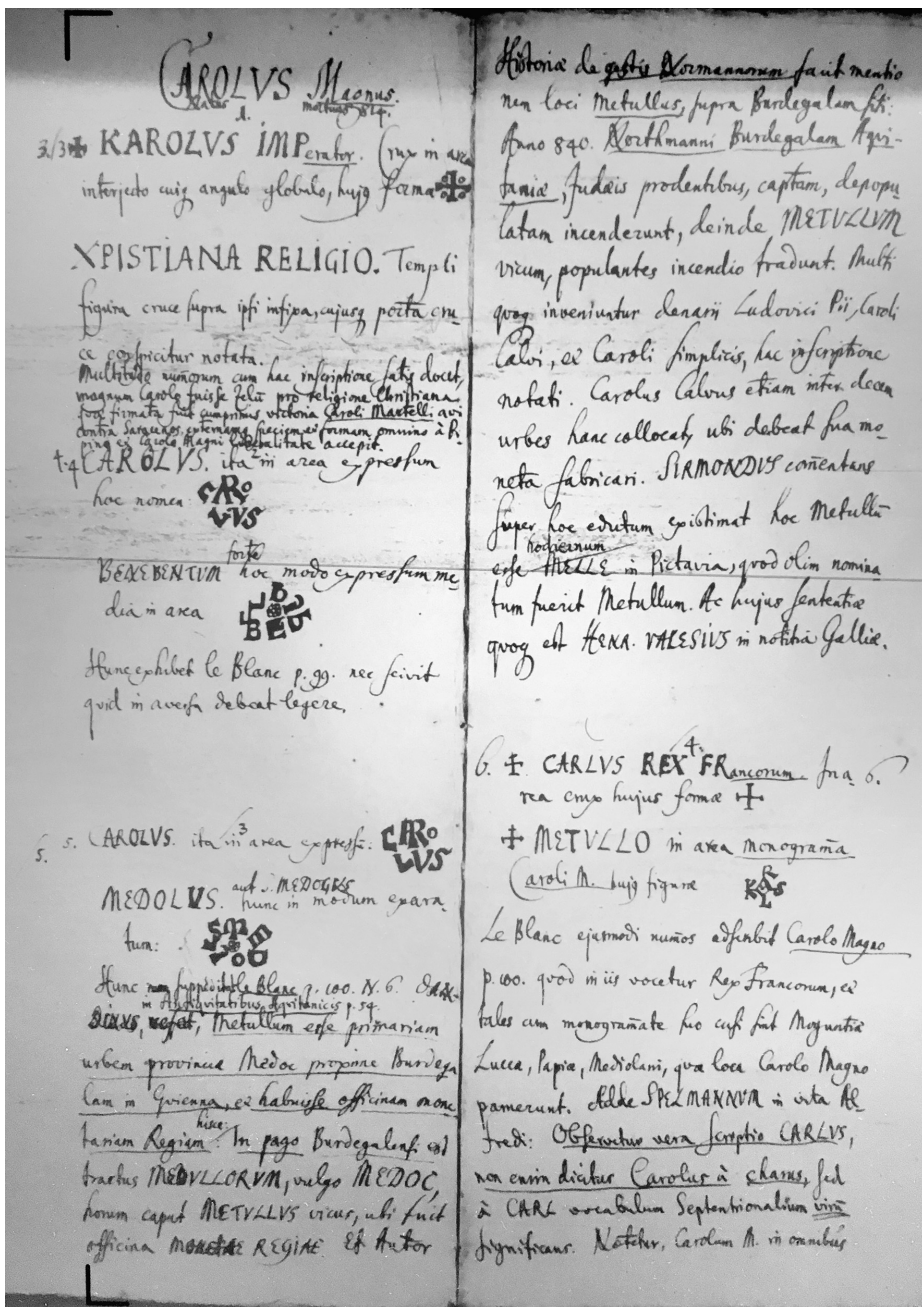 CAROLVS Magnus.
Natus
mortuus 814.
1.
3./3 ✠ KAROLVS IMPerator. Crux in area
interjecto cuiq angulo globulo, hujq forma
XPISTIANA RELIGIO. Templi
figura cruce supra ipsi infixa, cujusq porta cru-
ce conspicitur notata.
Multitudo numorum cum hac inscriptione satis docet,
magnum Carolo fuisse zelum pro religione Christiana
firmata fuit cumprimis victoria Caroli Martelli avi
contra externamq faciem et formam omnino à Pi-
pino et Carolo Magni liberalitate accepit.
4. 4 CAROLVS. ita 2 in area expressum
hoc nomen CARoLVS
BENEBENTVM forte hoc modo expressum me-
dia in area
Hunc exhibet le Blanc p. 99. nec scivit
quid in aversa debeat legere.
5. 5. CAROLVS. ita 3 in area expressu: CARoLVS
MEDOLVS. aut S. MEDOGUS hunc in modum expara-
tum:
Hunc suppeditat le Blanc p. 100. N. 6.
in Antiquitatibus Aquitanicis p. 54.
Metullum esse primariam
urbem provincia Medoc propine Burdega
lam in Gvienna, et habuisse officinam mone
tariam Regiam hisce: In pago Burdegalensi est
tractus MEDVLLORVM, vulgo MEDOC,
horum caput METVLLVS vicus, ubi fuit
officina MONETAE REGIAE. Et Autor
Historiæ de gestis Normannorum facit mentio
nem loci Metullus, supra Burdegalam siti:
Anno 840. Northmanni Burdegalam Aqui-
taniæ, Judæis prodentibus, captam, depopu
latam incenderunt, deinde METVLLVM
vicum, populantes incendio tradunt. Multi
quoq inveniuntur denarii Ludovici Pii, Caroli
Calvi, et Caroli simplicis, hac inscriptione
notati. Carolus Calvus etiam inter decem
urbes hanc collocat, ubi debeat sua mo-
neta fabricari. SIRMONDVS comentans
super hoc edictum existimat hoc Metullu
esse hodiernum MELLE in Pictavia, quod olim nomina
tum fuerit Metullum. Ac hujus sententiæ
quoq est HENR. VALESIVS in notitia Galliæ.
6. ✠ CARLVS REX 4. FRancorum. In a- 6.
rea crux hujus formæ ✠
✠ METVLLO in area monograma
Caroli M. hujq figuræ KRLS
Le Blanc ejusmodi numos adscribit Carolo Magno
p. 100. quod in iis vocetur Rex Francorum, et
tales cum monogramate suo cusi sint Moguntiæ
Lucca, Papiæ, Mediolani, quæ loca Carolo Magno
paruerunt. Adde SPELMANNVM in vita Al
fredi: Observetur vera scriptio CARLVS,
non enim dicitus Carolus à charus, sed
à CARL vocabulum Septentrionalium virum
significans. Notetur, Carolum M. in omnibus